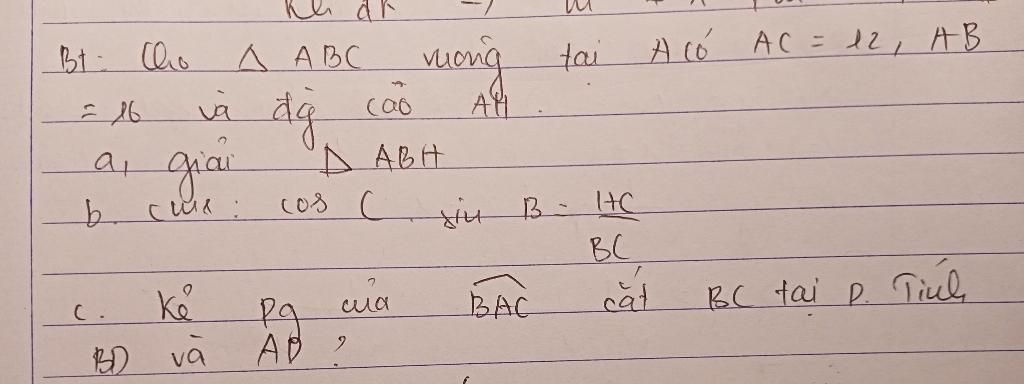 Bt: Cho △ ABC vuông tại A có AC = 12, AB
= 16 và đg cao AH.
a, giải △ ABH
b. cm: cos C . sin B = HC/BC
c. Kẻ pg của BAC cắt BC tại D. Tính
BD và AD ?